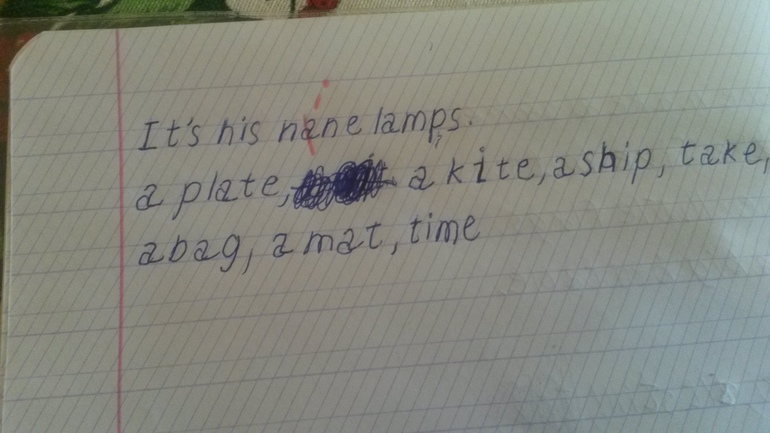 It's his nane lamps.
a plate, a kite, a ship, take,
a bag, a mat, time